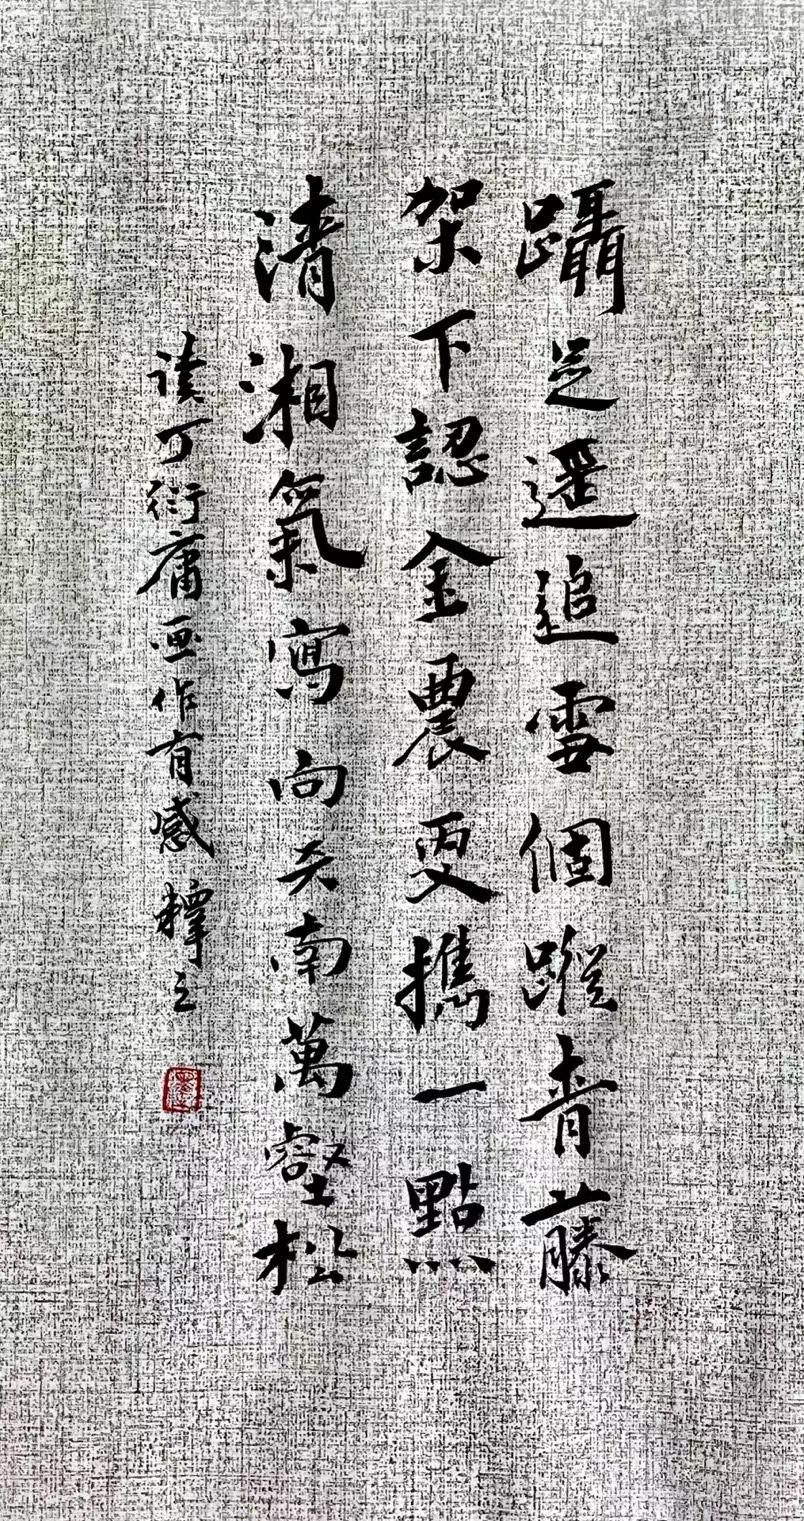 躡足遥追雪個蹤青藤
架下認金農更攜一點
清湘氣寫向天南萬壑松
读丁衍庸画作有感 檡之